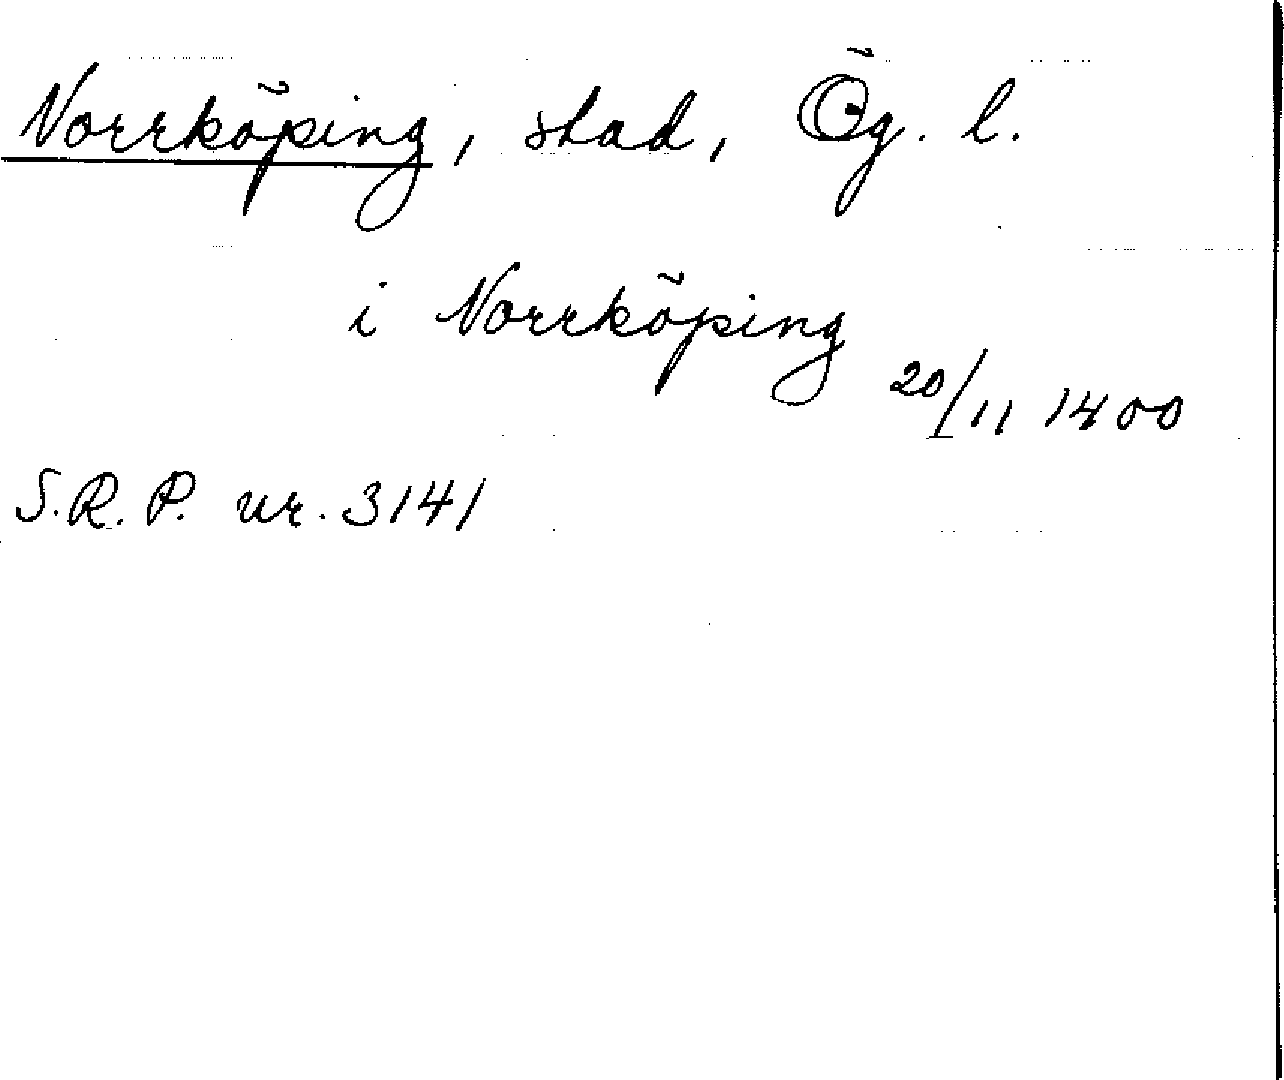 Norrköping, stad, Ög. l.
i Norrköping
20/11 1400
S.R.P. nr. 3141